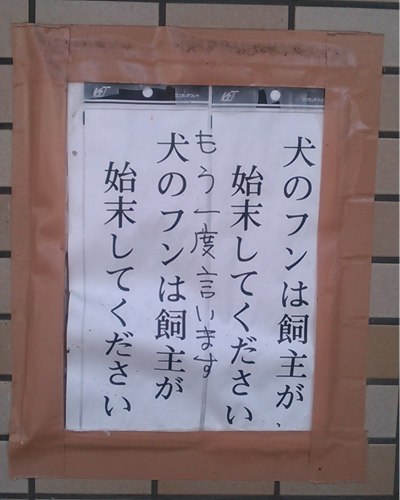 犬のフンは飼主が
始末してください
もう一度言います
犬のフンは飼主が
始末してください